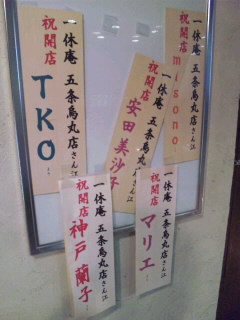 祝開店
一休庵 五条烏丸店さん江
migono
祝開店
一休庵 五条烏丸店さん江
安田美沙子
祝開店
一休庵 五条烏丸店さん江
TKO
祝開店
一休庵 五条烏丸店さん江
マリエ
祝開店
一休庵 五条烏丸店さん江
神戸蘭子